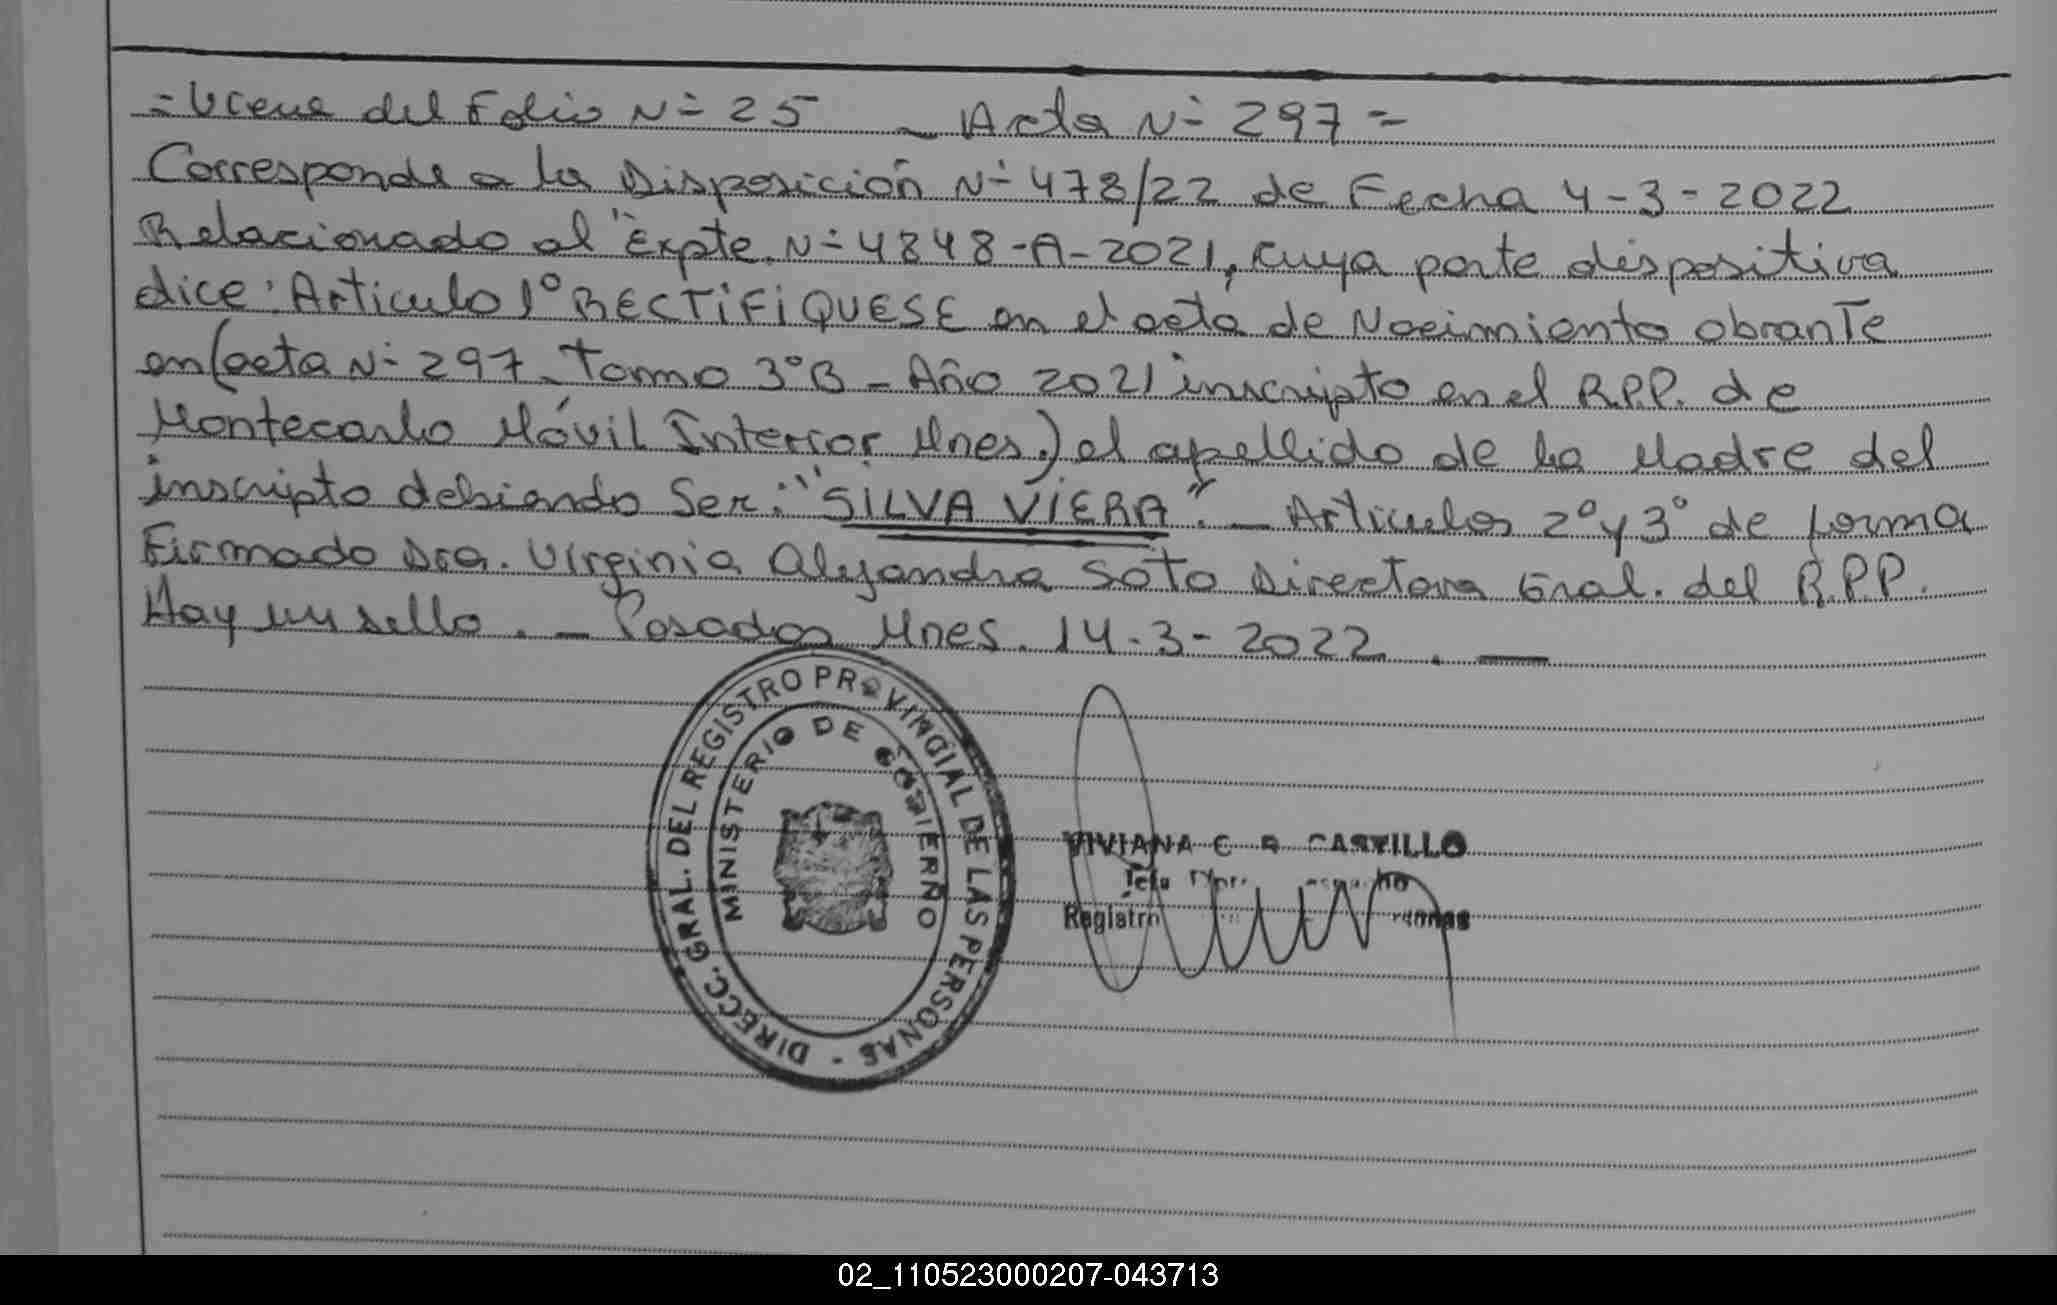 =Viene del Folio N= 25 - Acta N= 297=
Corresponde a la Disposición N= 478/22 de Fecha 4-3-2022
Relacionado al Expte. N= 4848-A-2021, cuya parte dispositiva
dice: Articulo 1° RECTIFIQUESE en el acta de Nacimiento obrante
en (acta N= 297 - Tomo 3°B - Año 2021 inscripto en el R.P.P. de
Montecarlo Móvil Interior Mnes.) el apellido de la Madre del
inscripto debiendo Ser: "SILVA VIERA". - Articulos 2° y 3° de forma
Firmado Dra. Virginia Alejandra Soto Directora Gral. del R.P.P.
Hay un sello. - Posadas Mnes. 14-3-2022. -
DIRECC. GRAL. DEL REGISTRO PROVINCIAL DE LAS PERSONAS -
MINISTERIO DE GOBIERNO
VIVIANA CASTILLO
02_110523000207-043713